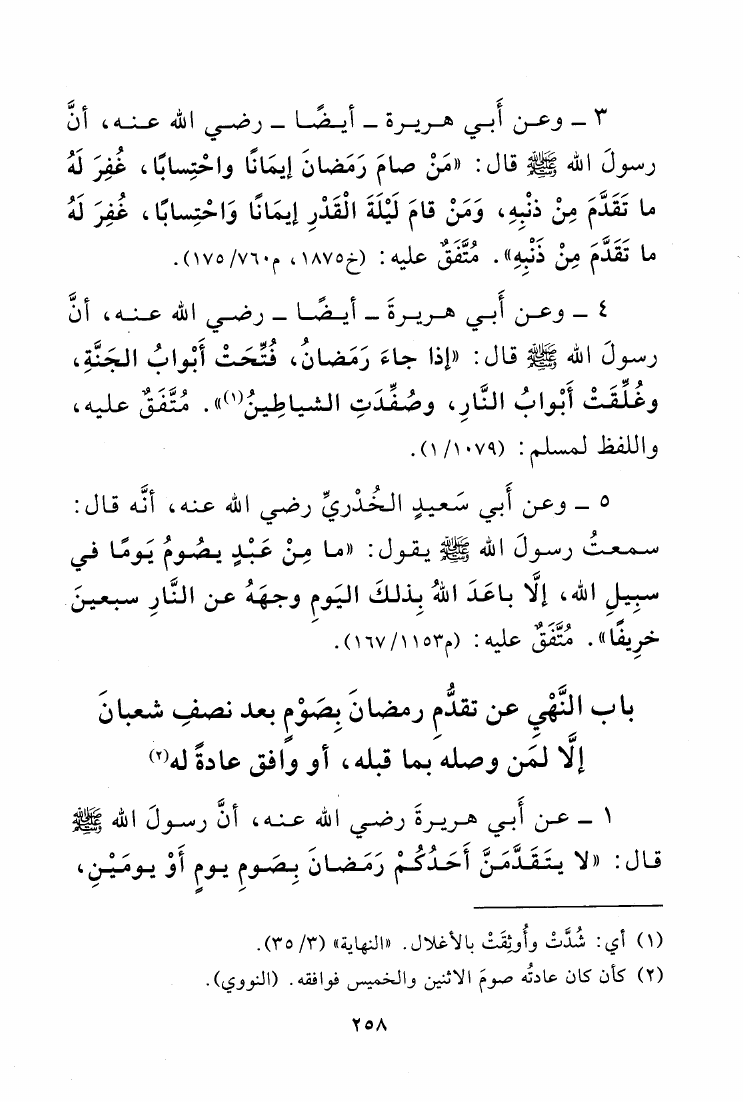 ٣ ـ وعـن أَبـي هـريـرة ـ أيـضًـا ـ رضـي الله عـنـه، أنَّ
رسولَ الله ﷺ قال: «مَنْ صامَ رَمَضانَ إيمَانًا واحْتِسابًا، غُفِرَ لَهُ
ما تَقَدَّمَ مِنْ ذنْبِهِ، وَمَنْ قامَ لَيْلَةَ الْقَدْرِ إيمَانًا وَاحْتِسابًا، غُفِرَ لَهُ
ما تَقَدَّمَ مِنْ ذَنْبِهِ». مُتَّفَقٌ عليه: (خ١٨٧٥، م١٧٥/٧٦٠).
٤ ـ وعـن أَبـي هـريـرةَ ـ أيـضًـا ـ رضـي الله عـنـه، أنَّ
رسولَ الله ﷺ قال: «إذا جاءَ رَمَضانُ، فُتِّحَتْ أَبْوابُ الجَنَّةِ،
وغُلِّقَتْ أَبْوابُ النَّارِ، وصُفِّدَتِ الشياطِينُ(١)». مُتَّفَقٌ عليه،
واللفظ لمسلم: (١/١٠٧٩).
٥ ـ وعن أَبي سَعيدٍ الخُدْريِّ رضي الله عنه، أنَّه قال:
سمعتُ رسولَ الله ﷺ يقول: «ما مِنْ عَبْدٍ يصُومُ يَومًا في
سبِيلِ الله، إلَّا باعَدَ اللهُ بِذلكَ اليَومِ وجهَهُ عن النَّارِ سبعينَ
خرِيفًا». مُتَّفَقٌ عليه: (م١٦٧/١١٥٣).
باب النَّهْيِ عن تقدُّمِ رمضانَ بِصَوْمٍ بعد نصفِ شعبانَ
إلَّا لمَن وصله بما قبله، أو وافق عادةً له(٢)
١ ـ عـن أَبـي هـريـرةَ رضـي الله عـنـه، أنَّ رسـولَ الله ﷺ
قـال: «لا يـتَـقَـدَّمَـنَّ أَحَـدُكُـمْ رَمَـضـانَ بِـصَـومِ يـومٍ أَوْ يـومَـيْـنِ،
(١) أي: شُدَّتْ وأُوثِقَتْ بالأغلال. «النهاية» (٣/ ٣٥).
(٢) كأن كان عادتُه صومَ الاثنين والخميس فوافقه. (النووي).
٢٥٨